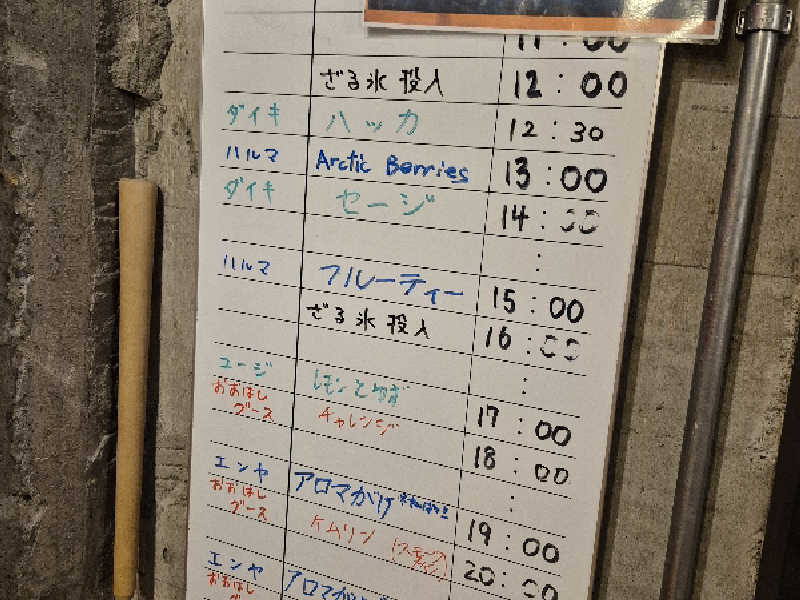 11:00
ざる氷 投入 12:00
ダイキ ハッカ 12:30
ハルマ Arctic Berries 13:00
ダイキ セージ 14:00
:
ハルマ フルーティー 15:00
ざる氷 投入 16:00
:
ユージ レモンとゆず 17:00
おおはし
グース チャレンジ 18:00
:
エンヤ アロマかけ 19:00
おおはし
グース ケムリン 20:00
エンヤ アロマかけ
おおはし